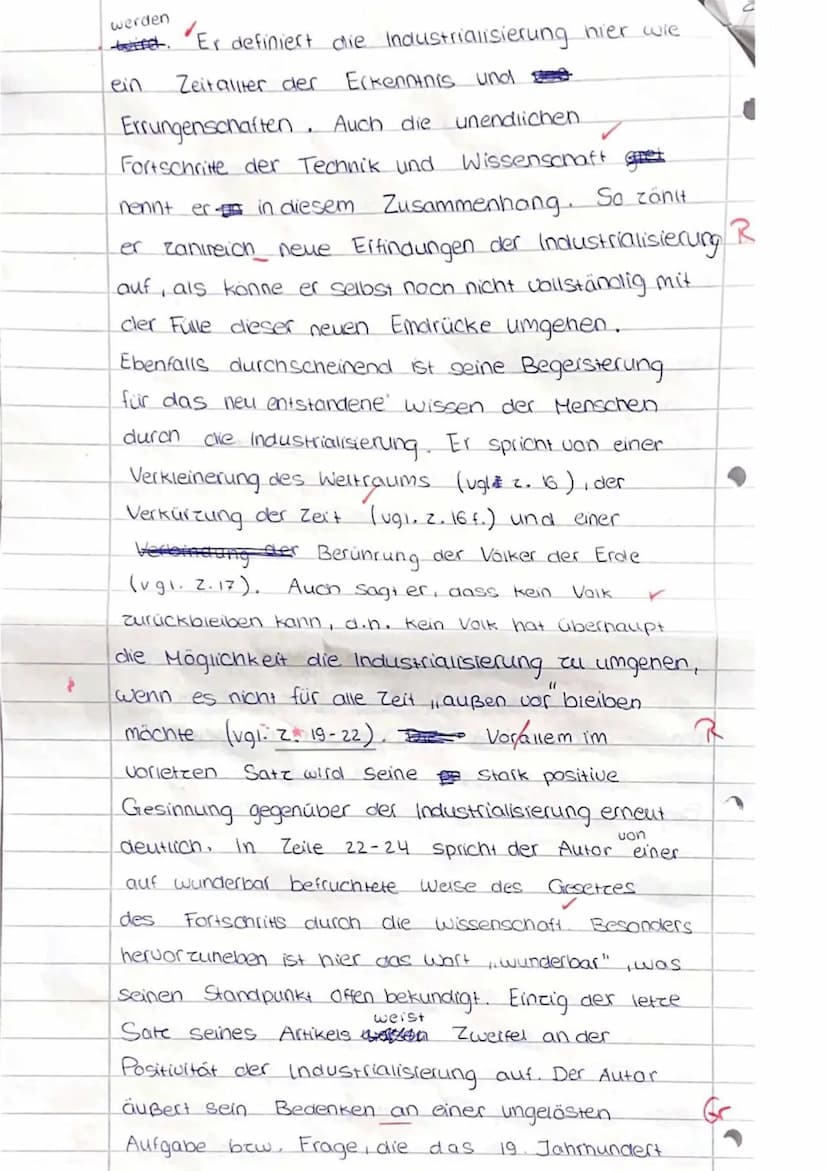 werden
wird. Er definiert die Industrialisierung hier wie
ein Zeitalter der Erkenntnis und
Errungenschaften. Auch die unendlichen
Fortschritte der Technik und Wissenschaft
nennt er in diesem Zusammenhang. So zählt
er zahlreich neue Erfindungen der Industrialisierung R
auf, als könne er selbst noch nicht vollständig mit
der Fülle dieser neuen Eindrücke umgehen.
Ebenfalls durchscheinend ist seine Begeisterung
für das neu entstandene Wissen der Menschen
durch die Industrialisierung. Er spricht von einer
Verkleinerung des Weltraums (vgl. Z. 16), der
Verkürzung der Zeit (vgl. Z. 16 f.) und einer
Verbindung der Berührung der Völker der Erde
(vgl. Z. 17). Auch sagt er, dass kein Volk
zurückbleiben kann, d.h. kein Volk hat überhaupt
die Möglichkeit die Industrialisierung zu umgehen,
wenn es nicht für alle Zeit „außen vor" bleiben
möchte (vgl. Z. 19-22). Vorallem im R
vorletzen Satz wird seine stark positive
Gesinnung gegenüber der Industrialisierung erneut
deutlich. In Zeile 22-24 spricht der Autor von einer
auf wunderbar befruchtete Weise des Gesetzes
des Fortschritts durch die Wissenschaft. Besonders
hervorzuheben ist hier das Wort „wunderbar", was
seinen Standpunkt offen bekundigt. Einzig der letze
Satz seines Artikels weist Zweifel an der
Positivität der Industrialisierung auf. Der Autor
äußert sein Bedenken an einer ungelösten Gr
Aufgabe bzw. Frage, die das 19. Jahrhundert